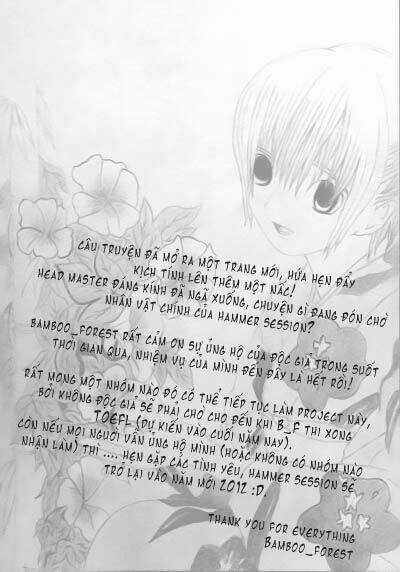 CÂU TRUYỆN ĐÃ MỞ RA MỘT TRANG MỚI, HỨA HẸN ĐẨY
KỊCH TÍNH LÊN THÊM MỘT NẤC!
HEAD MASTER ĐÁNG KÍNH ĐÃ NGÃ XUỐNG, CHUYỆN GÌ ĐANG ĐÓN CHỜ
NHÂN VẬT CHÍNH CỦA HAMMER SESSION?
BAMBOO_FOREST RẤT CẢM ƠN SỰ ỦNG HỘ CỦA ĐỘC GIẢ TRONG SUỐT
THỜI GIAN QUA, NHIỆM VỤ CỦA MÌNH ĐẾN ĐÂY LÀ HẾT RỒI!
RẤT MONG MỘT NHÓM NÀO ĐÓ CÓ THỂ TIẾP TỤC LÀM PROJECT NÀY,
BỞI KHÔNG ĐỘC GIẢ SẼ PHẢI CHỜ CHO ĐẾN KHI B_F THI XONG
TOEFL (DỰ KIẾN VÀO CUỐI NĂM NAY).
CÒN NẾU MỌI NGƯỜI VẪN ỦNG HỘ MÌNH (HOẶC KHÔNG CÓ NHÓM NÀO
NHẬN LÀM) THÌ .... HẸN GẶP CÁC TÌNH YÊU, HAMMER SESSION SẼ
TRỞ LẠI VÀO NĂM MỚI 2012 :D.
THANK YOU FOR EVERYTHING
BAMBOO_FOREST